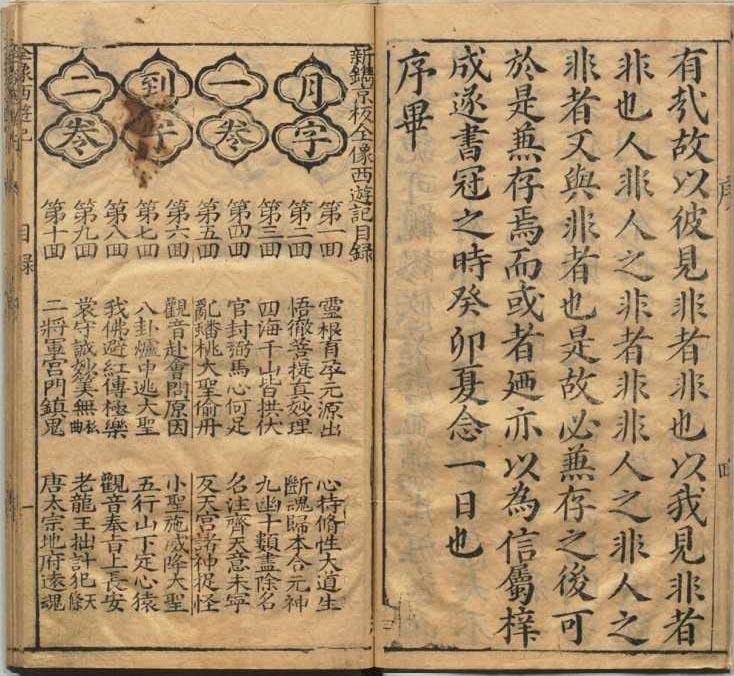 序
有哉故以彼見非者非也以我見非者
非也人非人之非者非非人之非人之
非者又與非者也是故必兼存之後可
於是兼存焉而或者廼亦以為信屬梓
成遂書冠之時癸卯夏念一日也
序畢
新鐫京板全像西遊記目錄
月字
一卷
到字
二卷
第一囬 靈根育孕元源出 心持脩性大道生
第二囬 悟徹菩提真妙理 斷魂歸本合元神
第三囬 四海千山皆拱伏 九幽十類盡除名
第四囬 官封弼馬心何足 名注齊天意未寧
第五囬 亂蟠桃大聖偷丹 反天宮諸神捉怪
第六囬 觀音赴會問原因 小聖施威降大聖
第七囬 八卦爐中逃大聖 五行山下定心猿
第八囬 我佛避紅傳極樂 觀音奉旨上長安
第九囬 袁守誠妙筭無私曲 老龍王拙計犯天條
第十囬 二將軍宮門鎮鬼 唐太宗地府還魂
全像西遊記 目錄 一